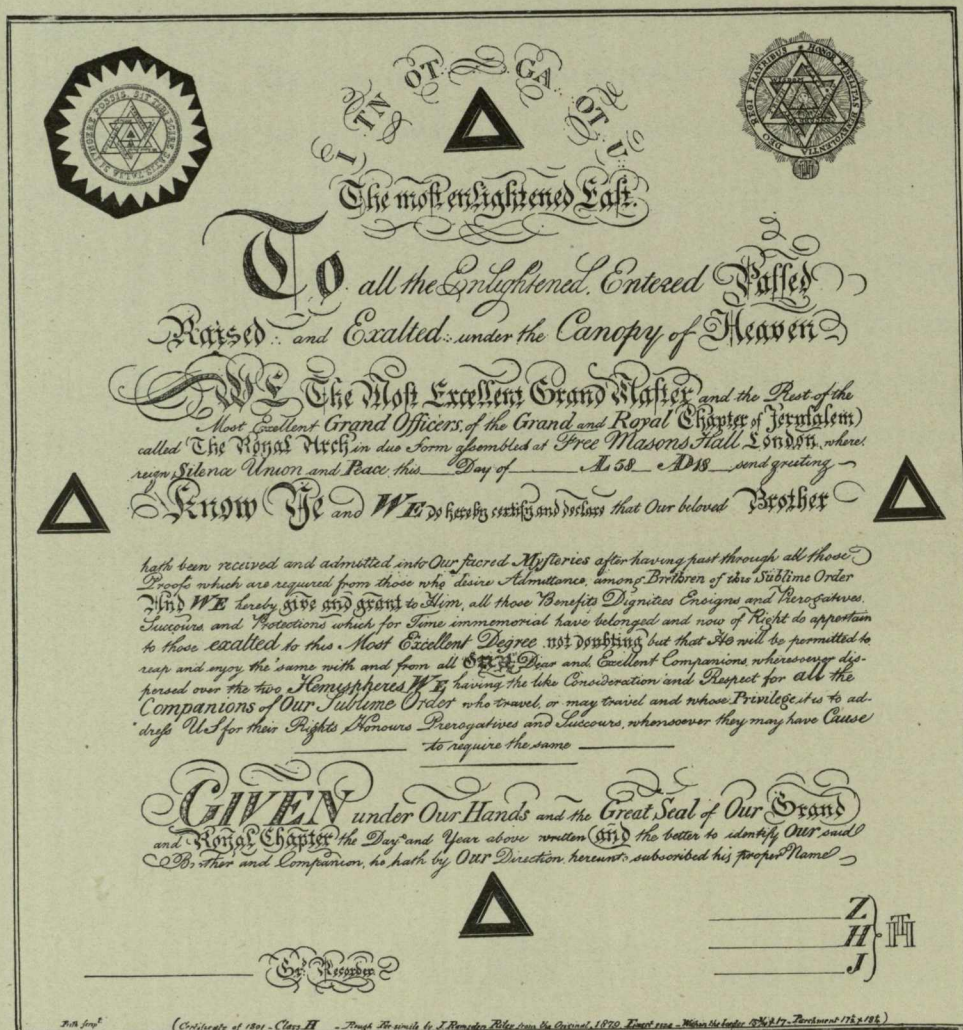 I TN OT GA OT U
The most enlightened East.
To all the Enlightened, Entered Passed
Raised and Exalted under the Canopy of Heaven
WE The Most Excellent Grand Master and the Rest of the
Most Excellent Grand Officers, of the Grand and Royal Chapter of Jerusalem
called The Royal Arch in due Form assembled at Free Masons Hall London, where
reign Silence Union and Peace this Day of AL 58 AD 18 send greeting
Know Ye and WE do hereby certify and declare that Our beloved Brother
hath been received and admitted into Our sacred Mysteries after having past through all those
Proofs which are required from those who desire Admittance, among Brethren of this Sublime Order
And WE hereby give and grant to Him, all those Benefits Dignities Ensigns and Prerogatives,
Succours and Protections which for Time immemorial have belonged and now of Right do appertain
to those exalted to this Most Excellent Degree not doubting but that He will be permitted to
reap and enjoy the same with and from all Our Dear and Excellent Companions, wheresoever dis-
persed over the two Hemispheres WE, having the like Consideration and Respect for all the
Companions of Our Sublime Order who travel, or may travel and whose Privilege it is to ad-
dress US for their Rights Honours Prerogatives and Succours, whensoever they may have Cause
to require the same
GIVEN under Our Hands and the Great Seal of Our Grand
and Royal Chapter the Day and Year above written and the better to identify Our said
Brother and Companion, he hath by Our Direction, hereunto subscribed his proper Name
Z
H
J
Gr. Recorder
SIT TIBI SCIRE SATIS
DEO REGI FRATRIBUS HONOR FIDELITAS BENEVOLENTIA
(Certificate of 1801 - Class H - Rough Fac simile by J Ramsden Riley from the Original, 1879